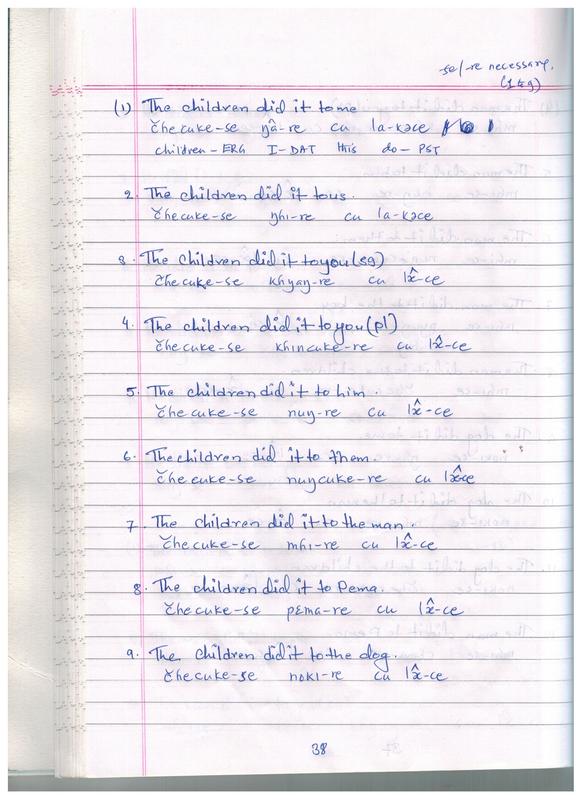 se/-re necessary.
(1 & 9)
(1) The children did it to me
čhecuke-se ŋâ-re cu la-kəce
children-ERG I-DAT this do-PST
2. The children did it to us.
čhecuke-se ŋhı-re cu la-kəce
3. The children did it to you (sg)
čhecuke-se khyaŋ-re cu lʌ̂-ce
4. The children did it to you (pl)
čhecuke-se khıncuke-re cu lʌ̂-ce
5. The children did it to him.
čhecuke-se nuŋ-re cu lʌ̂-ce
6. The children did it to them.
čhecuke-se nuŋcuke-re cu lʌ̂-ce
7. The children did it to the man.
čhecuke-se mhı-re cu lʌ̂-ce
8. The children did it to Pema.
čhecuke-se pɛma-re cu lʌ̂-ce
9. The children did it to the dog.
čhecuke-se nokı-re cu lʌ̂-ce
38